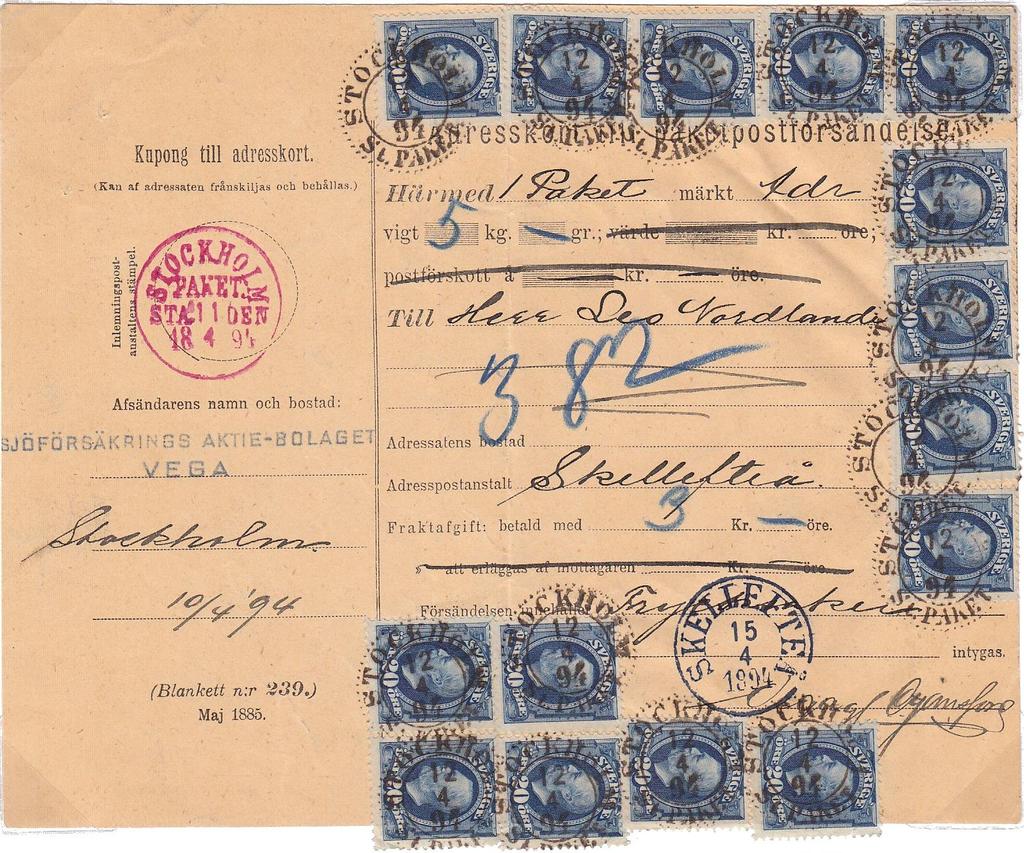 SVERIGE 20 ÖRE SVERIGE 20 ÖRE SVERIGE 20 ÖRE SVERIGE 20 ÖRE SVERIGE 20 ÖRE
STOCKHOLM 12 4 94 PAKET
Adresskort till paketpostförsändelse.
Kupong till adresskort.
(Kan af adressaten frånskiljas och behållas.)
Härmed 1 Paket märkt Adr
vigt 5 kg. — gr.; värde kr. öre;
postförskott å kr. — öre.
Inlemningspost-
anstaltens stämpel.
STOCKHOLM
PAKET.
18 4 94
Till Herr Leo Nordlander
3 82
Afsändarens namn och bostad:
SJÖFÖRSÄKRINGS AKTIE-BOLAGET
VEGA
Stockholm
10/4 '94
Adressatens bostad
Adresspostanstalt Skellefteå
Fraktafgift: betald med 3 Kr. — öre.
» att erläggas af mottagaren Kr. öre.
Försändelsen innehåller
SKELLEFTEÅ
15
4
1894
intygas.
(Blankett n:r 239.)
Maj 1885.